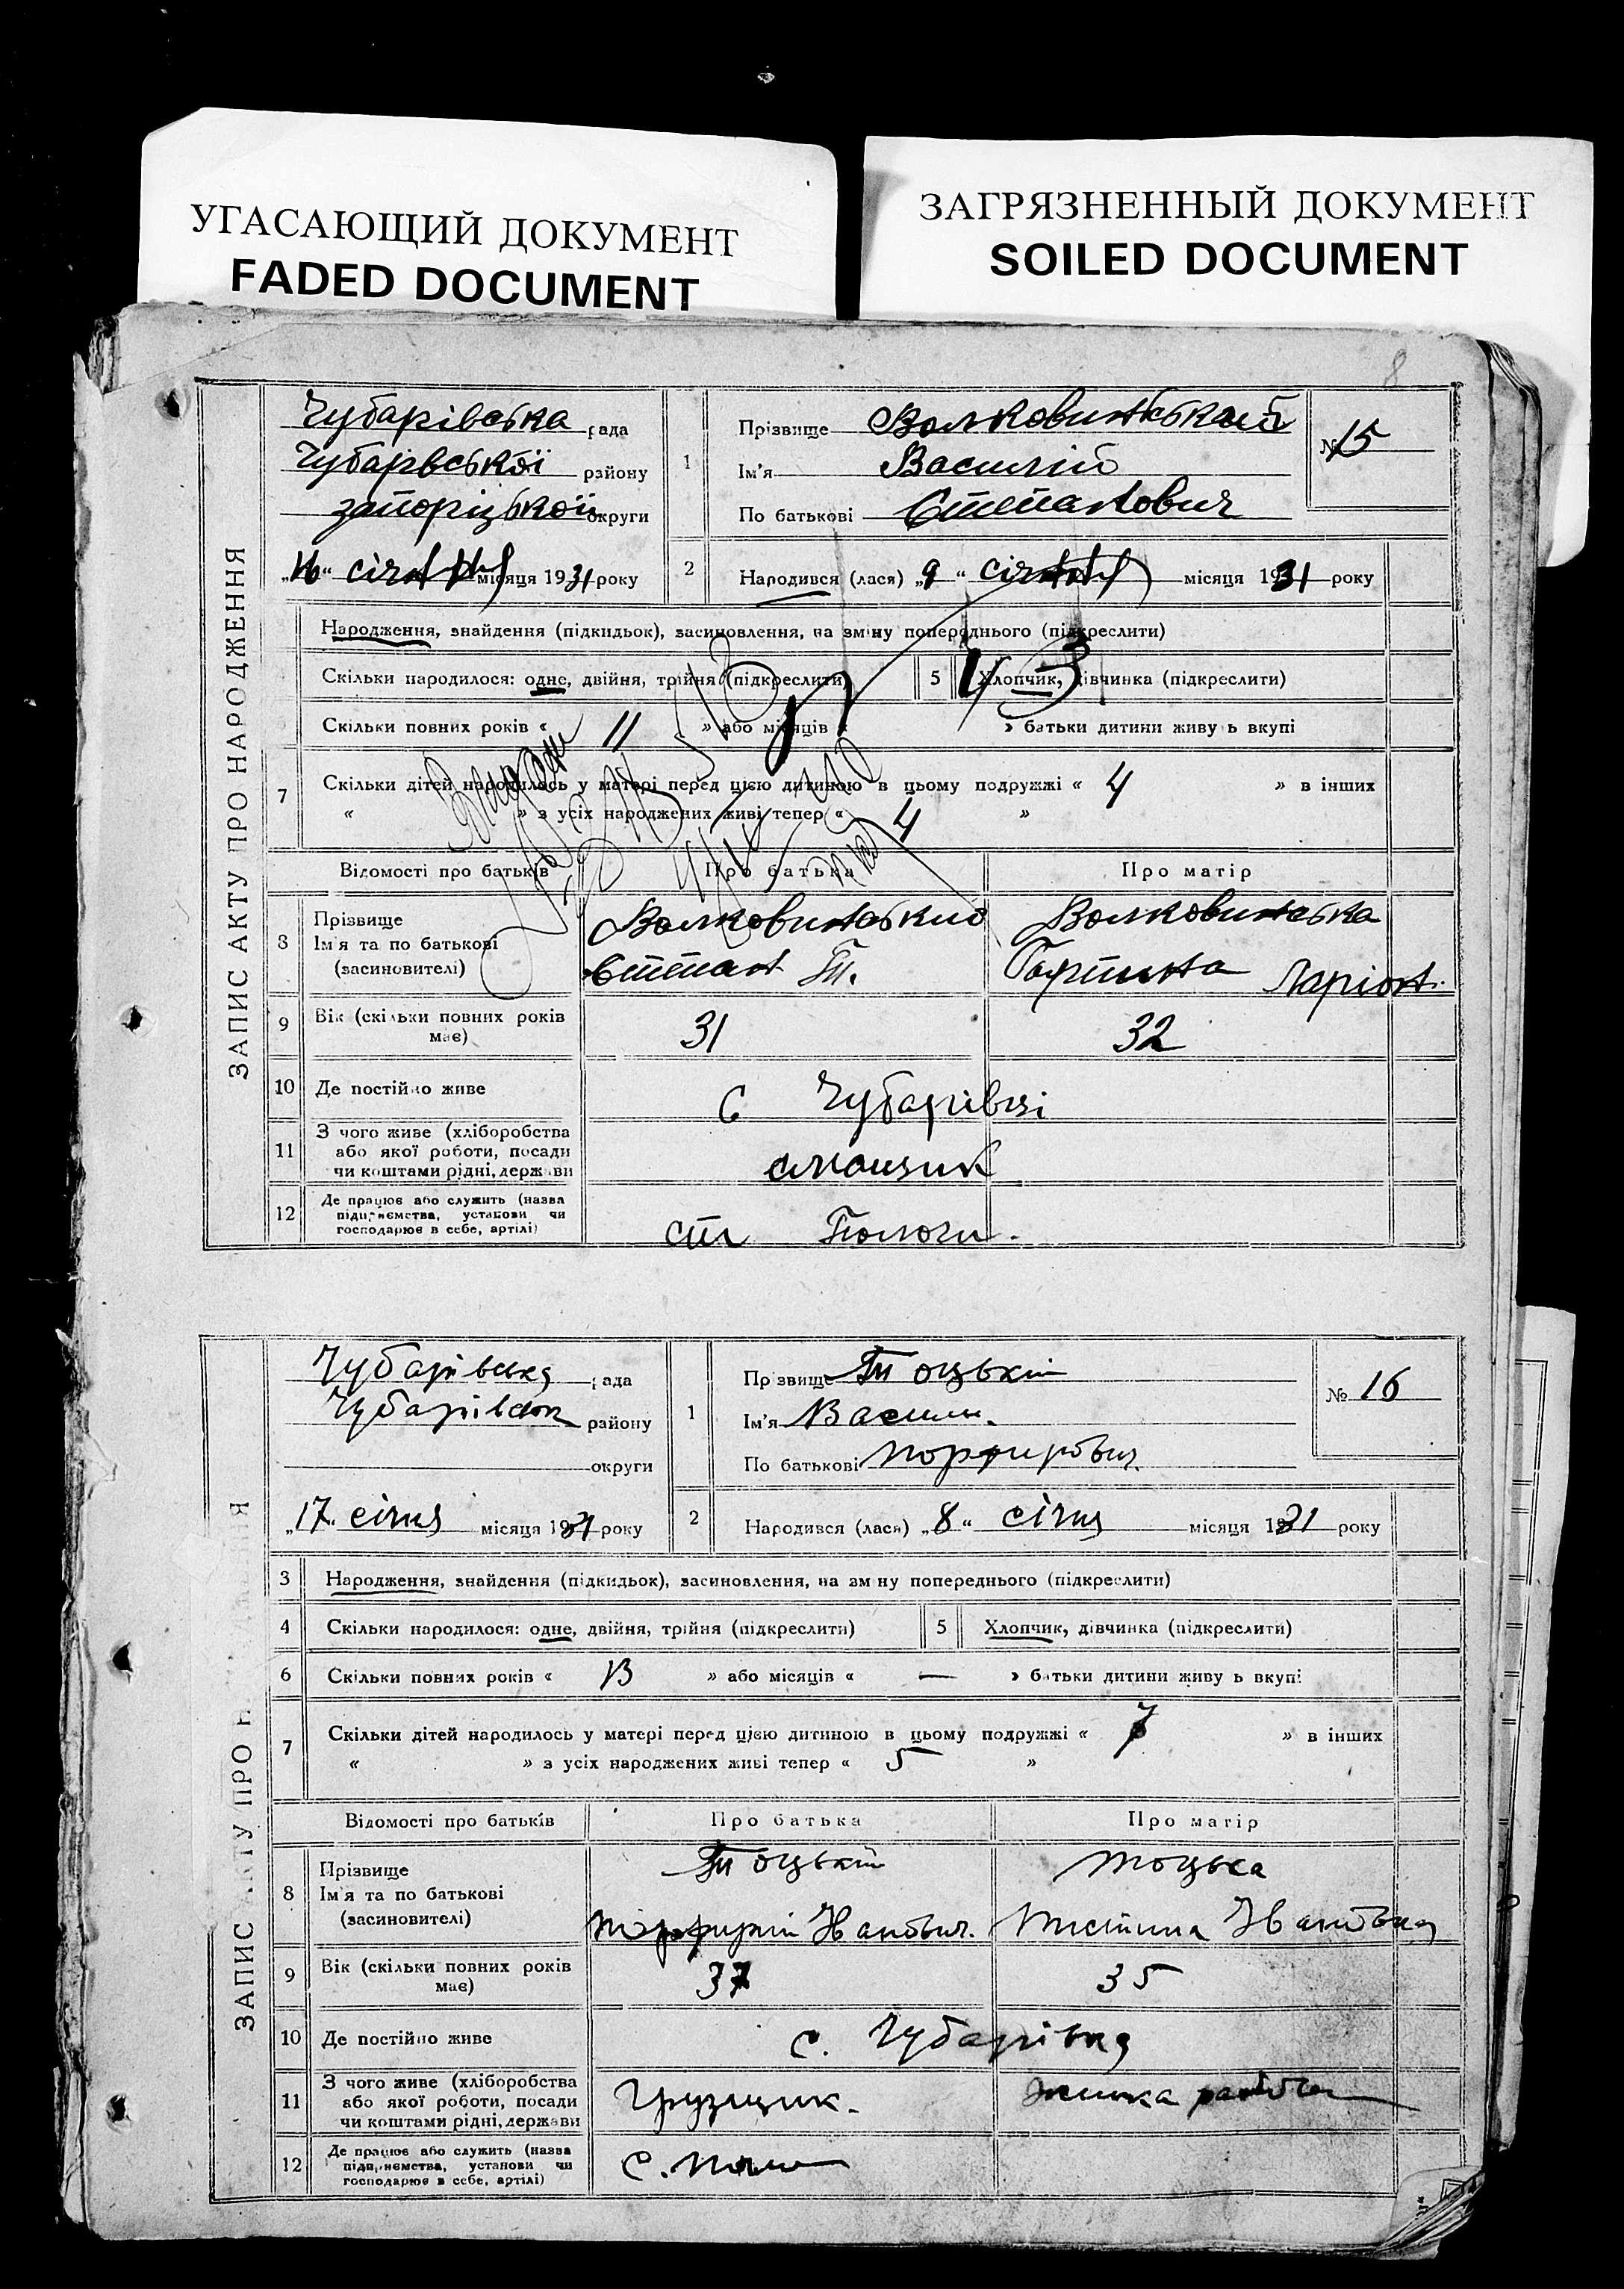 УГАСАЮЩИЙ ДОКУМЕНТ
FADED DOCUMENT
ЗАГРЯЗНЕННЫЙ ДОКУМЕНТ
SOILED DOCUMENT
8
ЗАПИС АКТУ ПРО НАРОДЖЕННЯ
Чубарівська рада
Чубарівської району
запорізької округи
„16“ січня місяця 1931 року
1
Прізвище Волковинський
Ім'я Василій
По батькові Степанович
№ 15
2
Народився (лася) „9“ січня місяця 1931 року
Народження, знайдення (підкидьок), засиновлення, на зміну попереднього (підкреслити)
Скільки народилося: одне, двійня, трійня (підкреслити)
5 Хлопчик, дівчинка (підкреслити)
Скільки повних років « 11 » або місяців « » батьки дитини живуть вкупі
7 Скільки дітей народилось у матері перед цією дитиною в цьому подружжі « 4 » в інших
« » з усіх народжених живі тепер « 4 »
Відомості про батьків Про батька Про матір
8 Прізвище
Ім'я та по батькові
(засиновителі)
Волковинський
Степан Т.
Волковинська
Ларіон.
9 Вік (скільки повних років має) 31 32
10 Де постійно живе с Чубарівці
11 З чого живе (хліборобства
або якої роботи, посади
чи коштами рідні, держави
смащик
12 Де працює або служить (назва
підприємства, установи чи
господарює в себе, артілі)
ст Пологи.
ЗАПИС АКТУ ПРО Н
Чубарівська рада
Чубарівськ району
округи
„17“ січня місяця 1931 року
1
Прізвище Тоцький
Ім'я Василь.
По батькові Порфирович.
№ 16
2
Народився (лася) „8“ січня місяця 1931 року
3 Народження, знайдення (підкидьок), засиновлення, на зміну попереднього (підкреслити)
4 Скільки народилося: одне, двійня, трійня (підкреслити)
5 Хлопчик, дівчинка (підкреслити)
6 Скільки повних років « 13 » або місяців « — » батьки дитини живуть вкупі
7 Скільки дітей народилось у матері перед цією дитиною в цьому подружжі « 7 » в інших
« » з усіх народжених живі тепер « 5 »
Відомості про батьків Про батька Про матір
8 Прізвище
Ім'я та по батькові
(засиновителі)
Тоцький
Порфирій Иванович.
Тоцька
Ивановна
9 Вік (скільки повних років має) 37 35
10 Де постійно живе с. Чубарівка
11 З чого живе (хліборобства
або якої роботи, посади
чи коштами рідні, держави
Грузщик.
жинка
12 Де працює або служить (назва
підприємства, установи чи
господарює в себе, артілі)